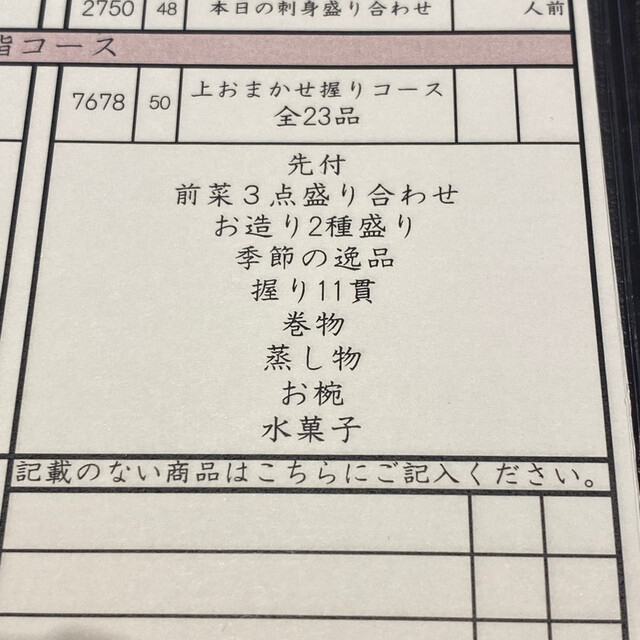 2750 48 本日の刺身盛り合わせ 人前
コース
7678 50 上おまかせ握りコース
全23品
先付
前菜３点盛り合わせ
お造り2種盛り
季節の逸品
握り11貫
巻物
蒸し物
お椀
水菓子
記載のない商品はこちらにご記入ください。